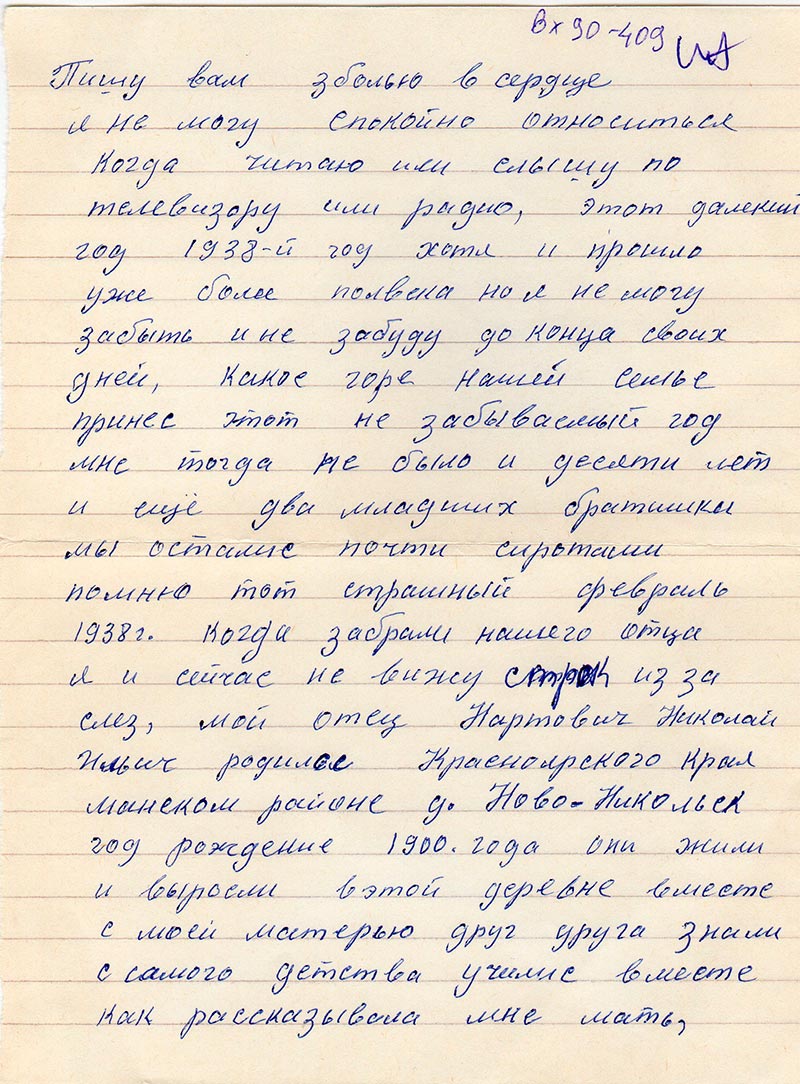 Вх 90-409
Пишу вам зболью в сердце
я не могу спокойно относиться
когда читаю или слышу по
телевизору или радио, этот далекий
год 1938-й год хотя и прошло
уже более полвека но я не могу
забыть и не забуду до конца своих
дней, какое горе нашей семье
принес этот не забываемый год
мне тогда не было и десяти лет
и ещё два младших братишки
мы осталис почти сиротами
помню тот страшный февраль
1938г. когда забрали нашего отца
я и сейчас не вижу строк из за
слез, мой отец Нартович Николай
Ильич родилсе Красноярского края
манском районе д. Ново-Никольск
год рождение 1900. года они жили
и выросли вэтой деревне вместе
с моей матерью друг друга знали
с самого детства училис вместе
как рассказывала мне мать,